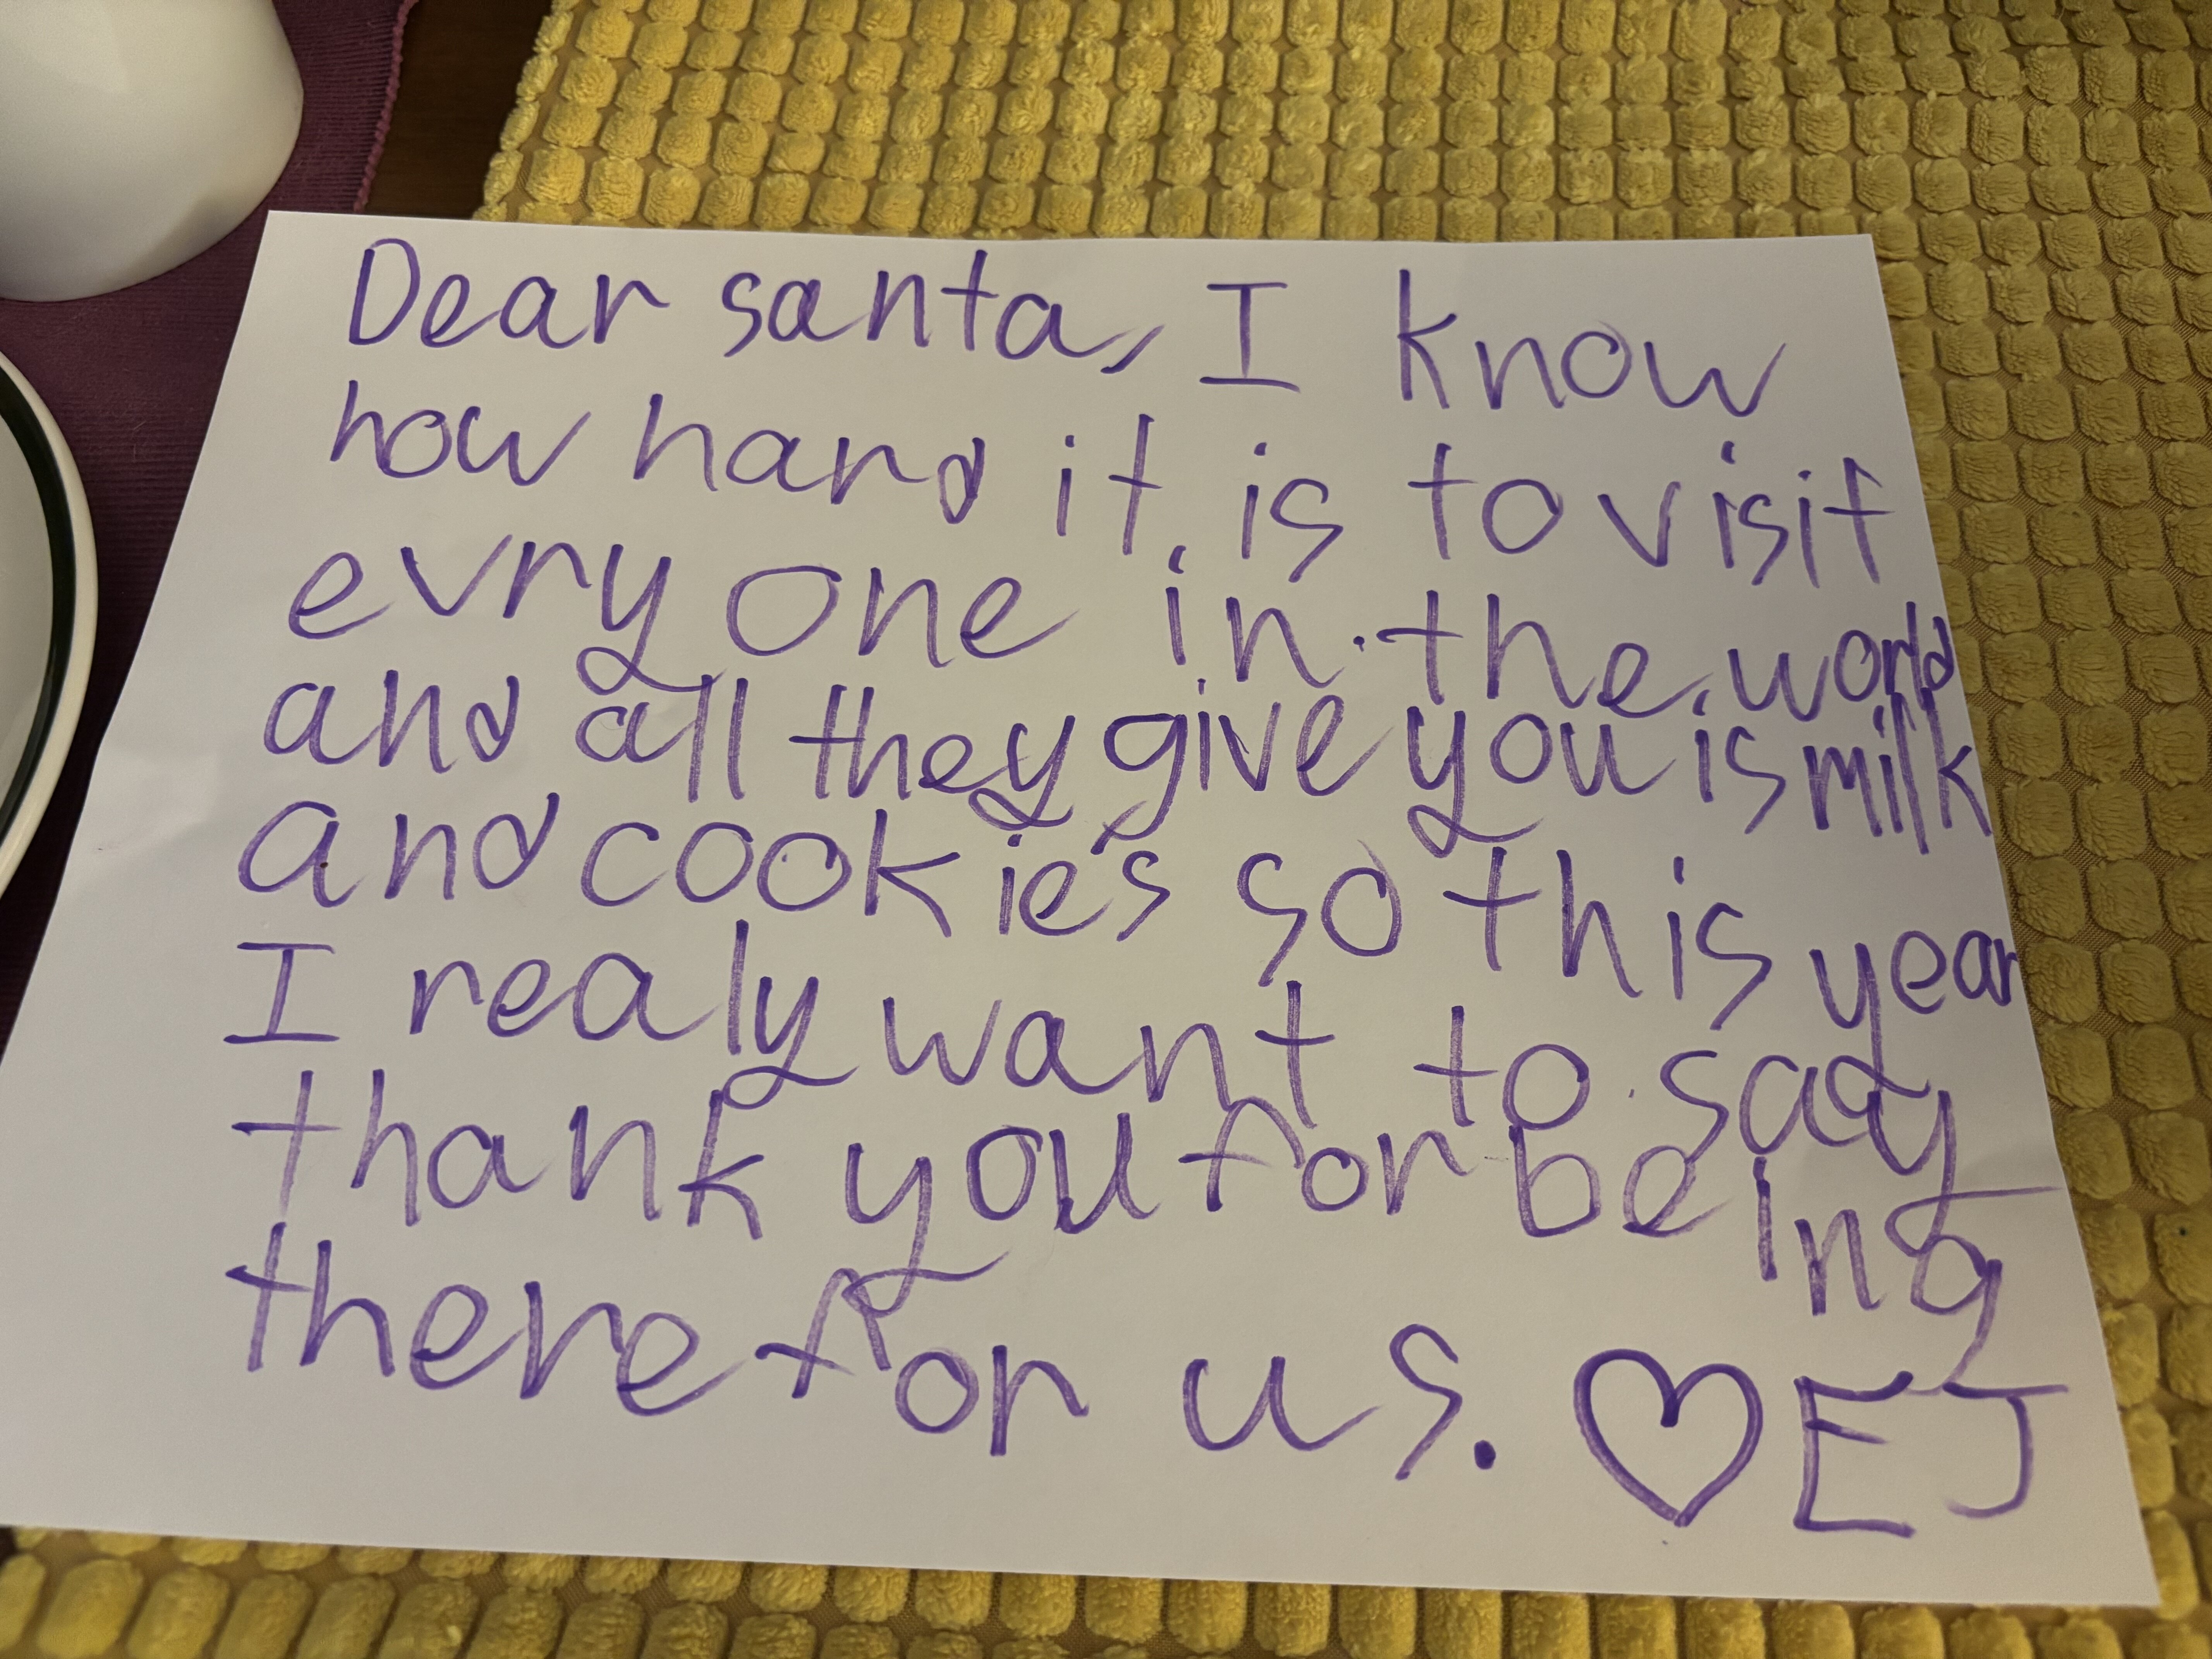 Dear santa, I know
how hard it is to visit
evry one in the world
and all they give you is milk
and cookies so this year
I realy want to say
thank you for being
there for us. ♡ EJ